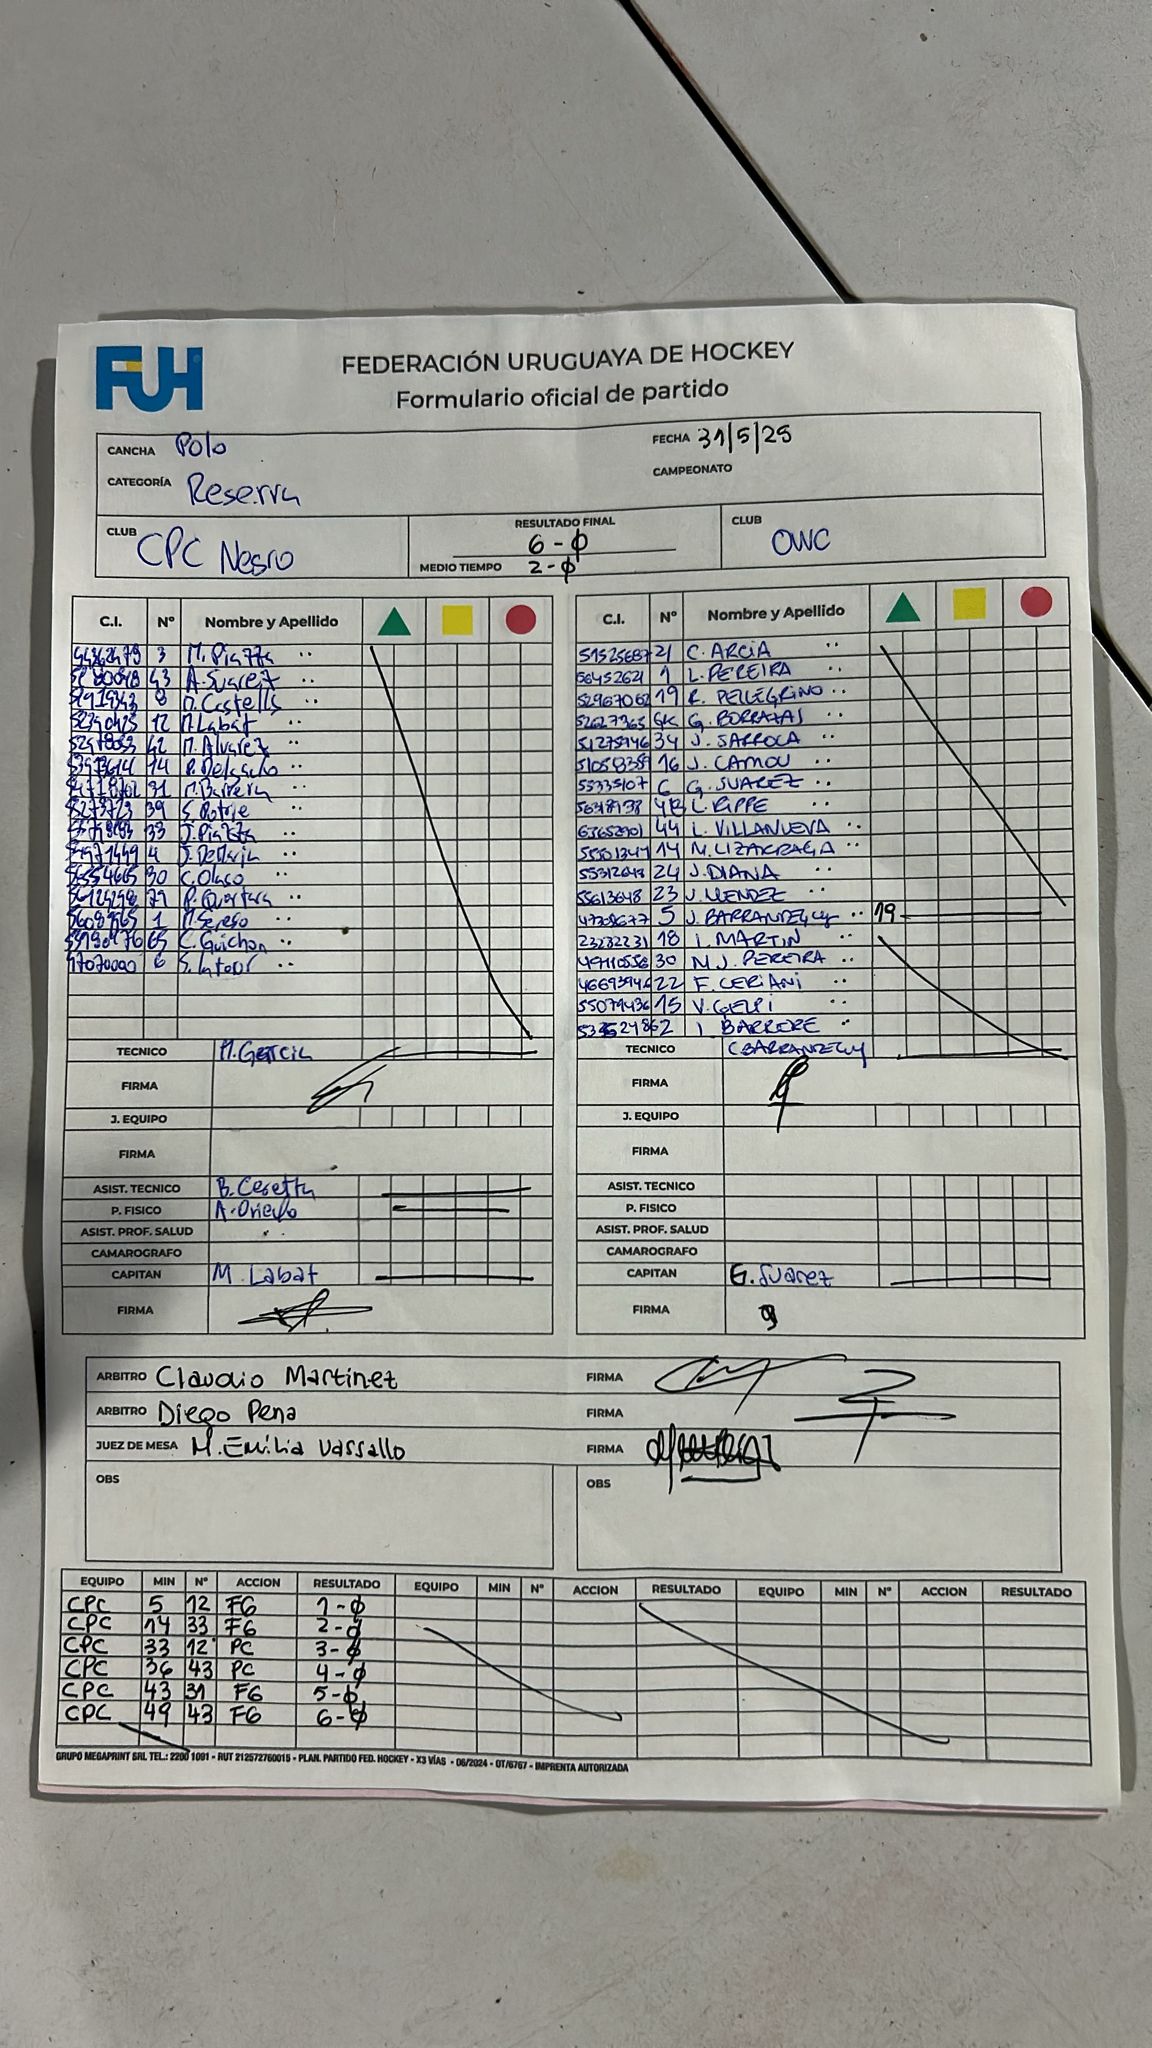 FUH
FEDERACIÓN URUGUAYA DE HOCKEY
Formulario oficial de partido
CANCHA Polo
FECHA 31/5/25
CATEGORÍA Reserva
CAMPEONATO
CLUB CPC Negro
RESULTADO FINAL 6-0
MEDIO TIEMPO 2-0
CLUB OWC
C.I. Nº Nombre y Apellido
3 M. Piazza
43 A. Suarez
8 M. Castells
12 M. Labat
42 M. Alvarez
14 Delgado
31 M. Barrera
39 S.
33 J. Piazza
4 J.
30 C. Olaso
P.
1 M.
65 C. Guichon
6 S.
TECNICO M. Garcia
FIRMA
J. EQUIPO
FIRMA
ASIST. TECNICO B. Ceretta
P. FISICO A. Oviedo
ASIST. PROF. SALUD
CAMAROGRAFO
CAPITAN M. Labat
FIRMA
C.I. Nº Nombre y Apellido
51525687 21 C. ARCIA
56452621 1 L. PEREIRA
52967062 19 R. PELLEGRINO
52627365 GK G. BORRAZAS
51275946 34 J. SARROCA
16 J. CAMOU
55335107 6 G. SUAREZ
L. RIPPE
44 L. VILLANUEVA
55501347 14 M. LIZARRAGA
24 J. DIANA
55613648 23 J. MENDEZ
5 J. BARRANDEGUY 19
23232231 18 I. MARTIN
49110556 30 M.J. PEREIRA
22 F. CERIANI
55079436 15 V. GELPI
2 I BARRERE
TECNICO C BARRANDEGUY
FIRMA
J. EQUIPO
FIRMA
ASIST. TECNICO
P. FISICO
ASIST. PROF. SALUD
CAMAROGRAFO
CAPITAN G. Suarez
FIRMA
ARBITRO Claudio Martinez FIRMA
ARBITRO Diego Pena FIRMA
JUEZ DE MESA M. Emilia Vassallo FIRMA
OBS OBS
EQUIPO MIN Nº ACCION RESULTADO EQUIPO MIN Nº ACCION RESULTADO EQUIPO MIN Nº ACCION RESULTADO
CPC 5 12 FG 1-0
CPC 14 33 FG 2-0
CPC 33 12 PC 3-0
CPC 36 43 PC 4-0
CPC 43 31 FG 5-0
CPC 49 43 FG 6-0
GRUPO MEGAPRINT SRL TEL.: 2200 1091 - RUT 212572760015 - PLAN. PARTIDO FED. HOCKEY - X3 VÍAS - 06/2024 - OT/6767 - IMPRENTA AUTORIZADA